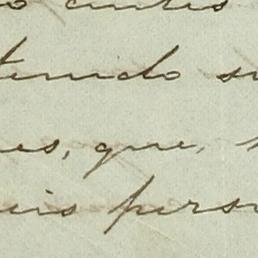 o antes
tenido su
es, que,
is perso